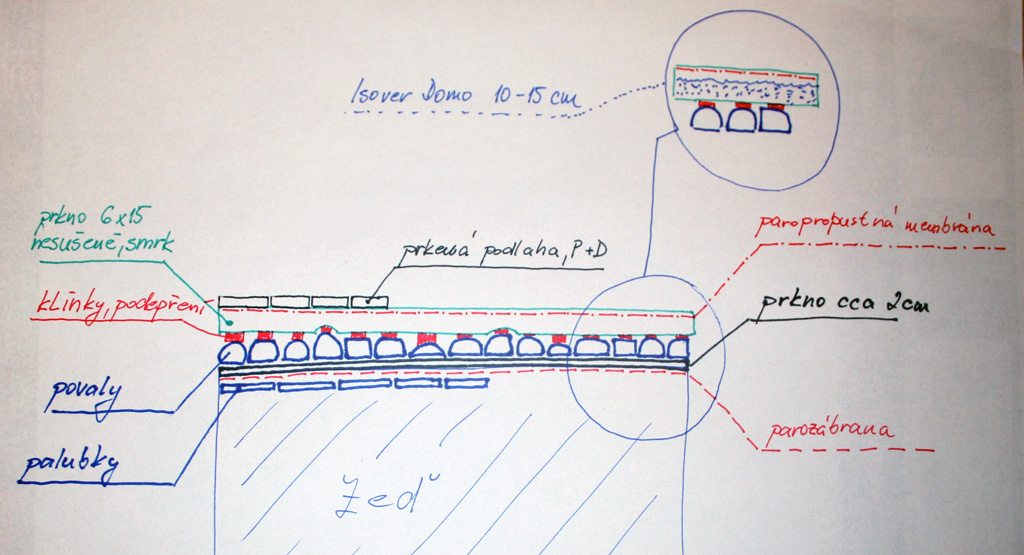 Isover Domo 10-15 cm
prkno 6x15
nesušené, smrk
prkenná podlaha, P+D
paropropustná membrána
klínky, podepření
prkno cca 2cm
povaly
parozábrana
palubky
Zeď